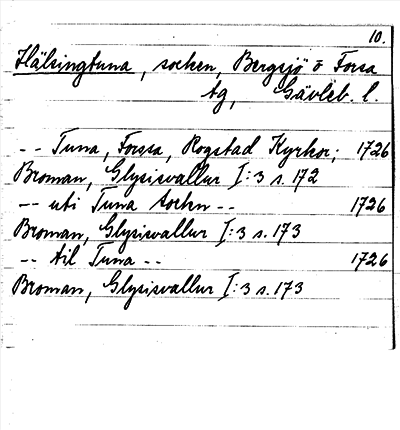 10.
Hälsingtuna, socken, Bergsjö o Forsa
tg, Gävleb. l.
-- Tuna, Forssa, Rogstad Kyrkor; 1726
Broman, Glysisvallur I:3 s. 172
-- uti Tuna sockn -- 1726
Broman, Glysisvallur I:3 s. 173
-- til Tuna -- 1726
Broman, Glysisvallur I:3 s. 173